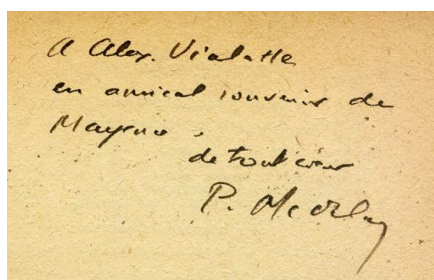 A Alex. Vialatte
en amical souvenir de
Mayence.
de tout cœur
P. McOrlan